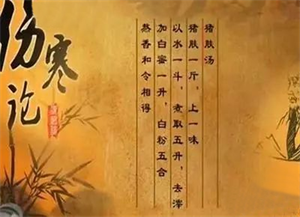 伤寒论
猪肤汤
猪肤一斤，上一味
以水一斗，煮取五升，去滓
加白蜜一升，白粉五合
熬香和令相得